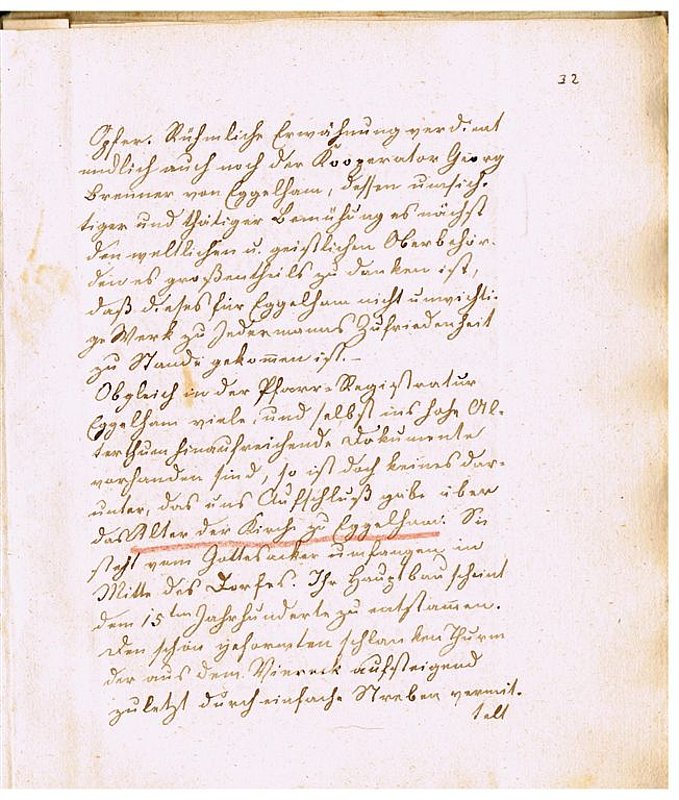 32
Opfer. Rühmliche Erwähnung verdient
endlich auch noch der Kooperator Georg
Brenner von Eggelham, dessen umsich-
tiger und thätiger Bemühung es nächst
den weltlichen u. geistlichen Oberbehör-
den es großentheils zu danken ist,
daß dieses für Eggelham nicht unwichti-
ge Werk zu Jedermanns Zufriedenheit
zu Stande gekom̅en ist. –
Obgleich in der Pfarr-Registratur
Eggelham viele, und selbst ins hohe Al-
terthum hinaufreichende Dokumente
vorhanden sind, so ist doch keines dar-
unter, das uns Aufschluß gäbe über
das Alter der Kirche zu Eggelham. Sie
steht vom Gottesacker umfangen in
Mitte des Dorfes. Ihr Hauptbau scheint
dem 15ten Jahrhunderte zu entstam̅en.
Den schön geformten schlanken Thurm
der aus dem Viereck aufsteigend
zuletzt durch einfache Streben vermit-
telt